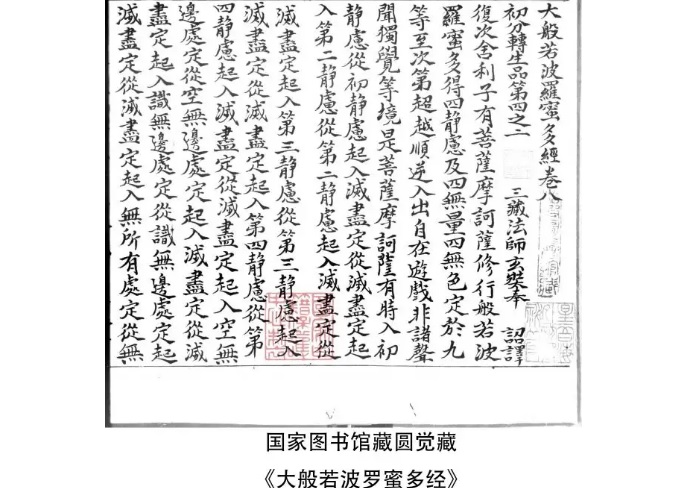 大般若波羅蜜多經卷八
初分轉生品第四之二 三藏法師玄奘奉 詔譯
復次舍利子有菩薩摩訶薩修行般若波
羅蜜多得四静慮及四無量四無色定於九
等至次第超越順逆入出自在遊戲非諸聲
聞獨覺等境是菩薩摩訶薩有時入初
静慮從初静慮起入滅盡定從滅盡定起
入第二静慮從第二静慮起入滅盡定從
滅盡定起入第三静慮從第三静慮起入
滅盡定從滅盡定起入第四静慮從第
四静慮起入滅盡定從滅盡定起入空無
邊處定從空無邊處定起入滅盡定從滅
盡定起入識無邊處定從識無邊處定起
滅盡定從滅盡定起入無所有處定從無
国家图书馆藏圆觉藏
《大般若波罗蜜多经》